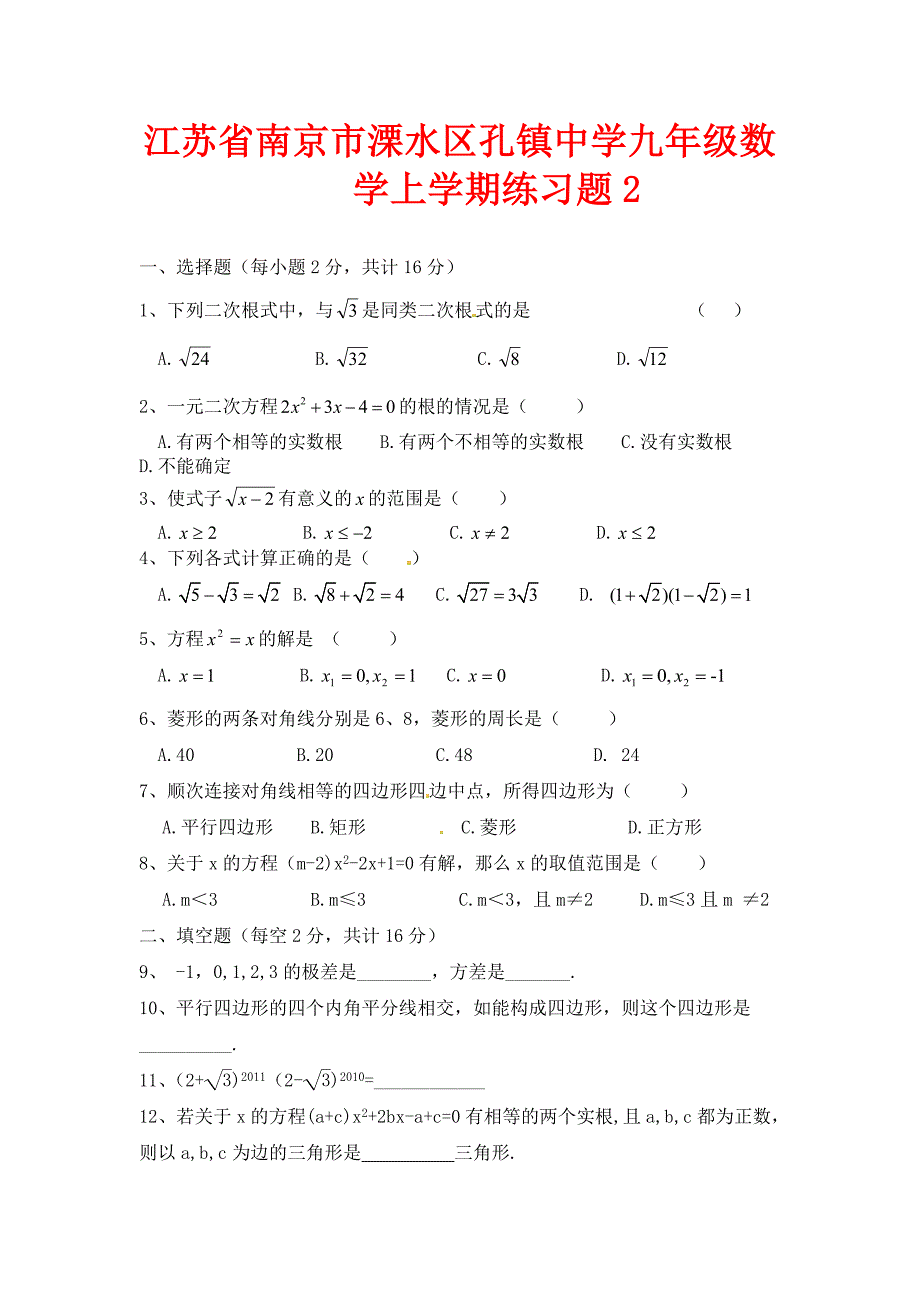 江苏省南京市溧水区孔镇中学九年级数
学上学期练习题2
一、选择题（每小题2分，共计16分）
1、下列二次根式中，与√3是同类二次根式的是 （ ）
A.√24 B.√32 C.√8 D.√12
2、一元二次方程2x²+3x-4=0的根的情况是（ ）
A.有两个相等的实数根 B.有两个不相等的实数根 C.没有实数根
D.不能确定
3、使式子√(x-2)有意义的x的范围是（ ）
A.x≥2 B.x≤-2 C.x≠2 D.x≤2
4、下列各式计算正确的是（ ）
A.√5-√3=√2 B.√8+√2=4 C.√27=3√3 D. (1+√2)(1-√2)=1
5、方程x²=x的解是 （ ）
A.x=1 B.x₁=0,x₂=1 C.x=0 D.x₁=0,x₂=-1
6、菱形的两条对角线分别是6、8，菱形的周长是（ ）
A.40 B.20 C.48 D. 24
7、顺次连接对角线相等的四边形四边中点，所得四边形为（ ）
A.平行四边形 B.矩形 C.菱形 D.正方形
8、关于x的方程（m-2)x²-2x+1=0有解，那么x的取值范围是（ ）
A.m＜3 B.m≤3 C.m＜3，且m≠2 D.m≤3且m ≠2
二、填空题（每空2分，共计16分）
9、 -1，0,1,2,3的极差是________，方差是_______.
10、平行四边形的四个内角平分线相交，如能构成四边形，则这个四边形是
__________.
11、（2+√3)²⁰¹¹（2-√3)²⁰¹⁰=____________
12、若关于x的方程(a+c)x²+2bx-a+c=0有相等的两个实根,且a,b,c都为正数，
则以a,b,c为边的三角形是__________三角形.